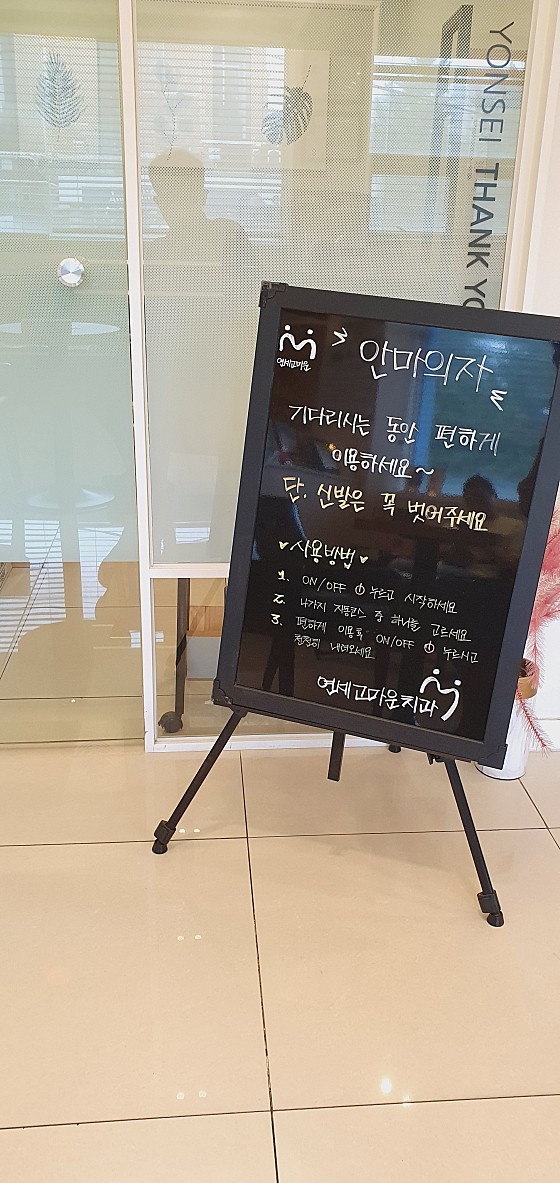 YONSEI THANK YO
연세고마운
안마의자
기다리시는 동안 편하게
이용하세요~
단, 신발은 꼭 벗어주세요
사용방법
1. ON/OFF 누르고 시작하세요
2. 4가지 자동코스 중 하나를 고르세요
3. 편하게 이용 후 ON/OFF 누르시고
천천히 내려오세요
연세고마운치과